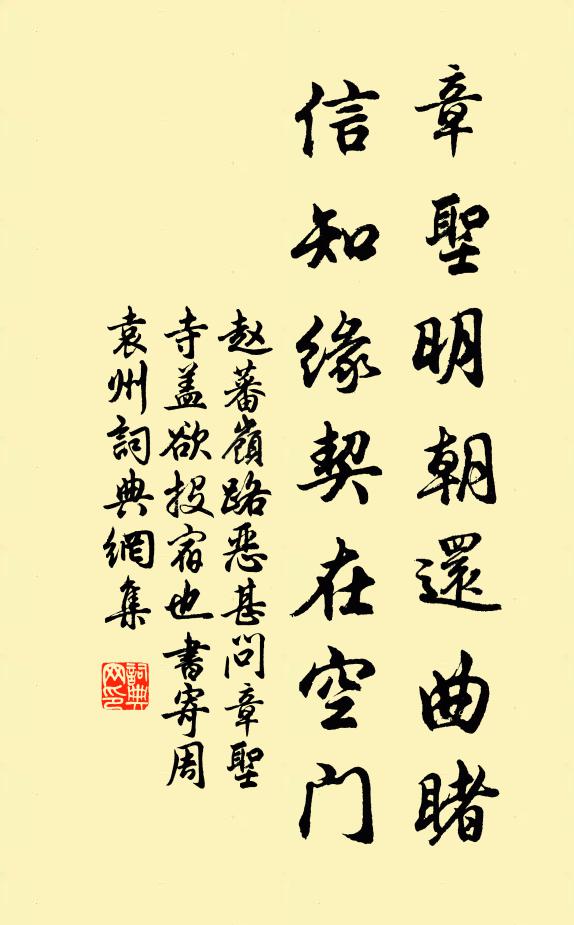 章聖明朝還曲睹
信知缘契在空门
赵蕃嶺路恶甚问章聖
寺盖欲投宿也書寄周
袁州詞典網集
詞典网印